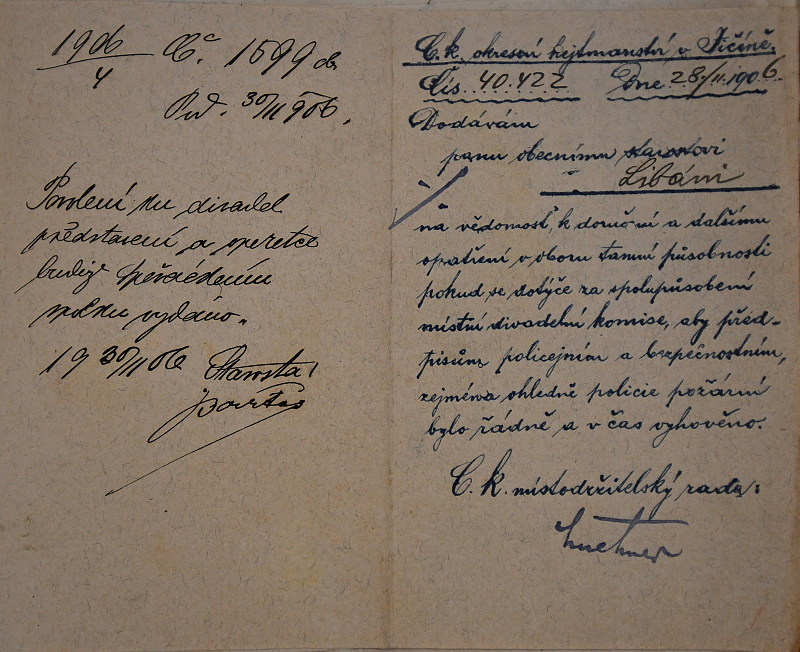 1906/4 Čč. 1599 ob.
Pid. 30/11 906.
Povolení ku divadel
představení a operetce
budiž zpěváckému
spolku vydáno.
19 30/11 06 Starosta:
C. k. okresní hejtmanství v Jičíně.
Čís. 40.422 Dne 28/11. 1906.
Dodávám
panu obecnímu starostovi
Libáni
na vědomost, k doručení a dalšímu
opatření v oboru tamní působnosti
pokud se dotýče za spolupůsobení
místní divadelní komise, aby před-
pisům policejním a bezpečnostním,
zejména ohledně policie požární
bylo řádně a v čas vyhověno.
C. k. místodržitelský rada: